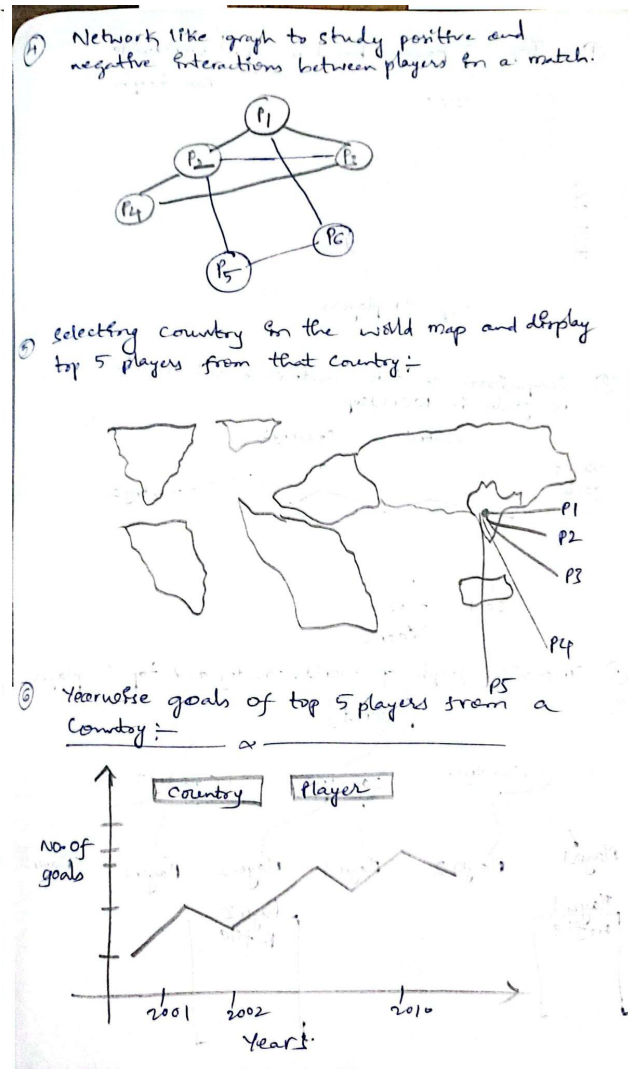 4 Network like graph to study positive and
negative interactions between players in a match.
P1
P2
P3
P4
P6
P5
5 Selecting country in the world map and display
top 5 players from that country :-
P1
P2
P3
P4
P5
6 Yearwise goals of top 5 players from a
Country :-
Country Player
No. of
goals
2001 2002 2010
Years.